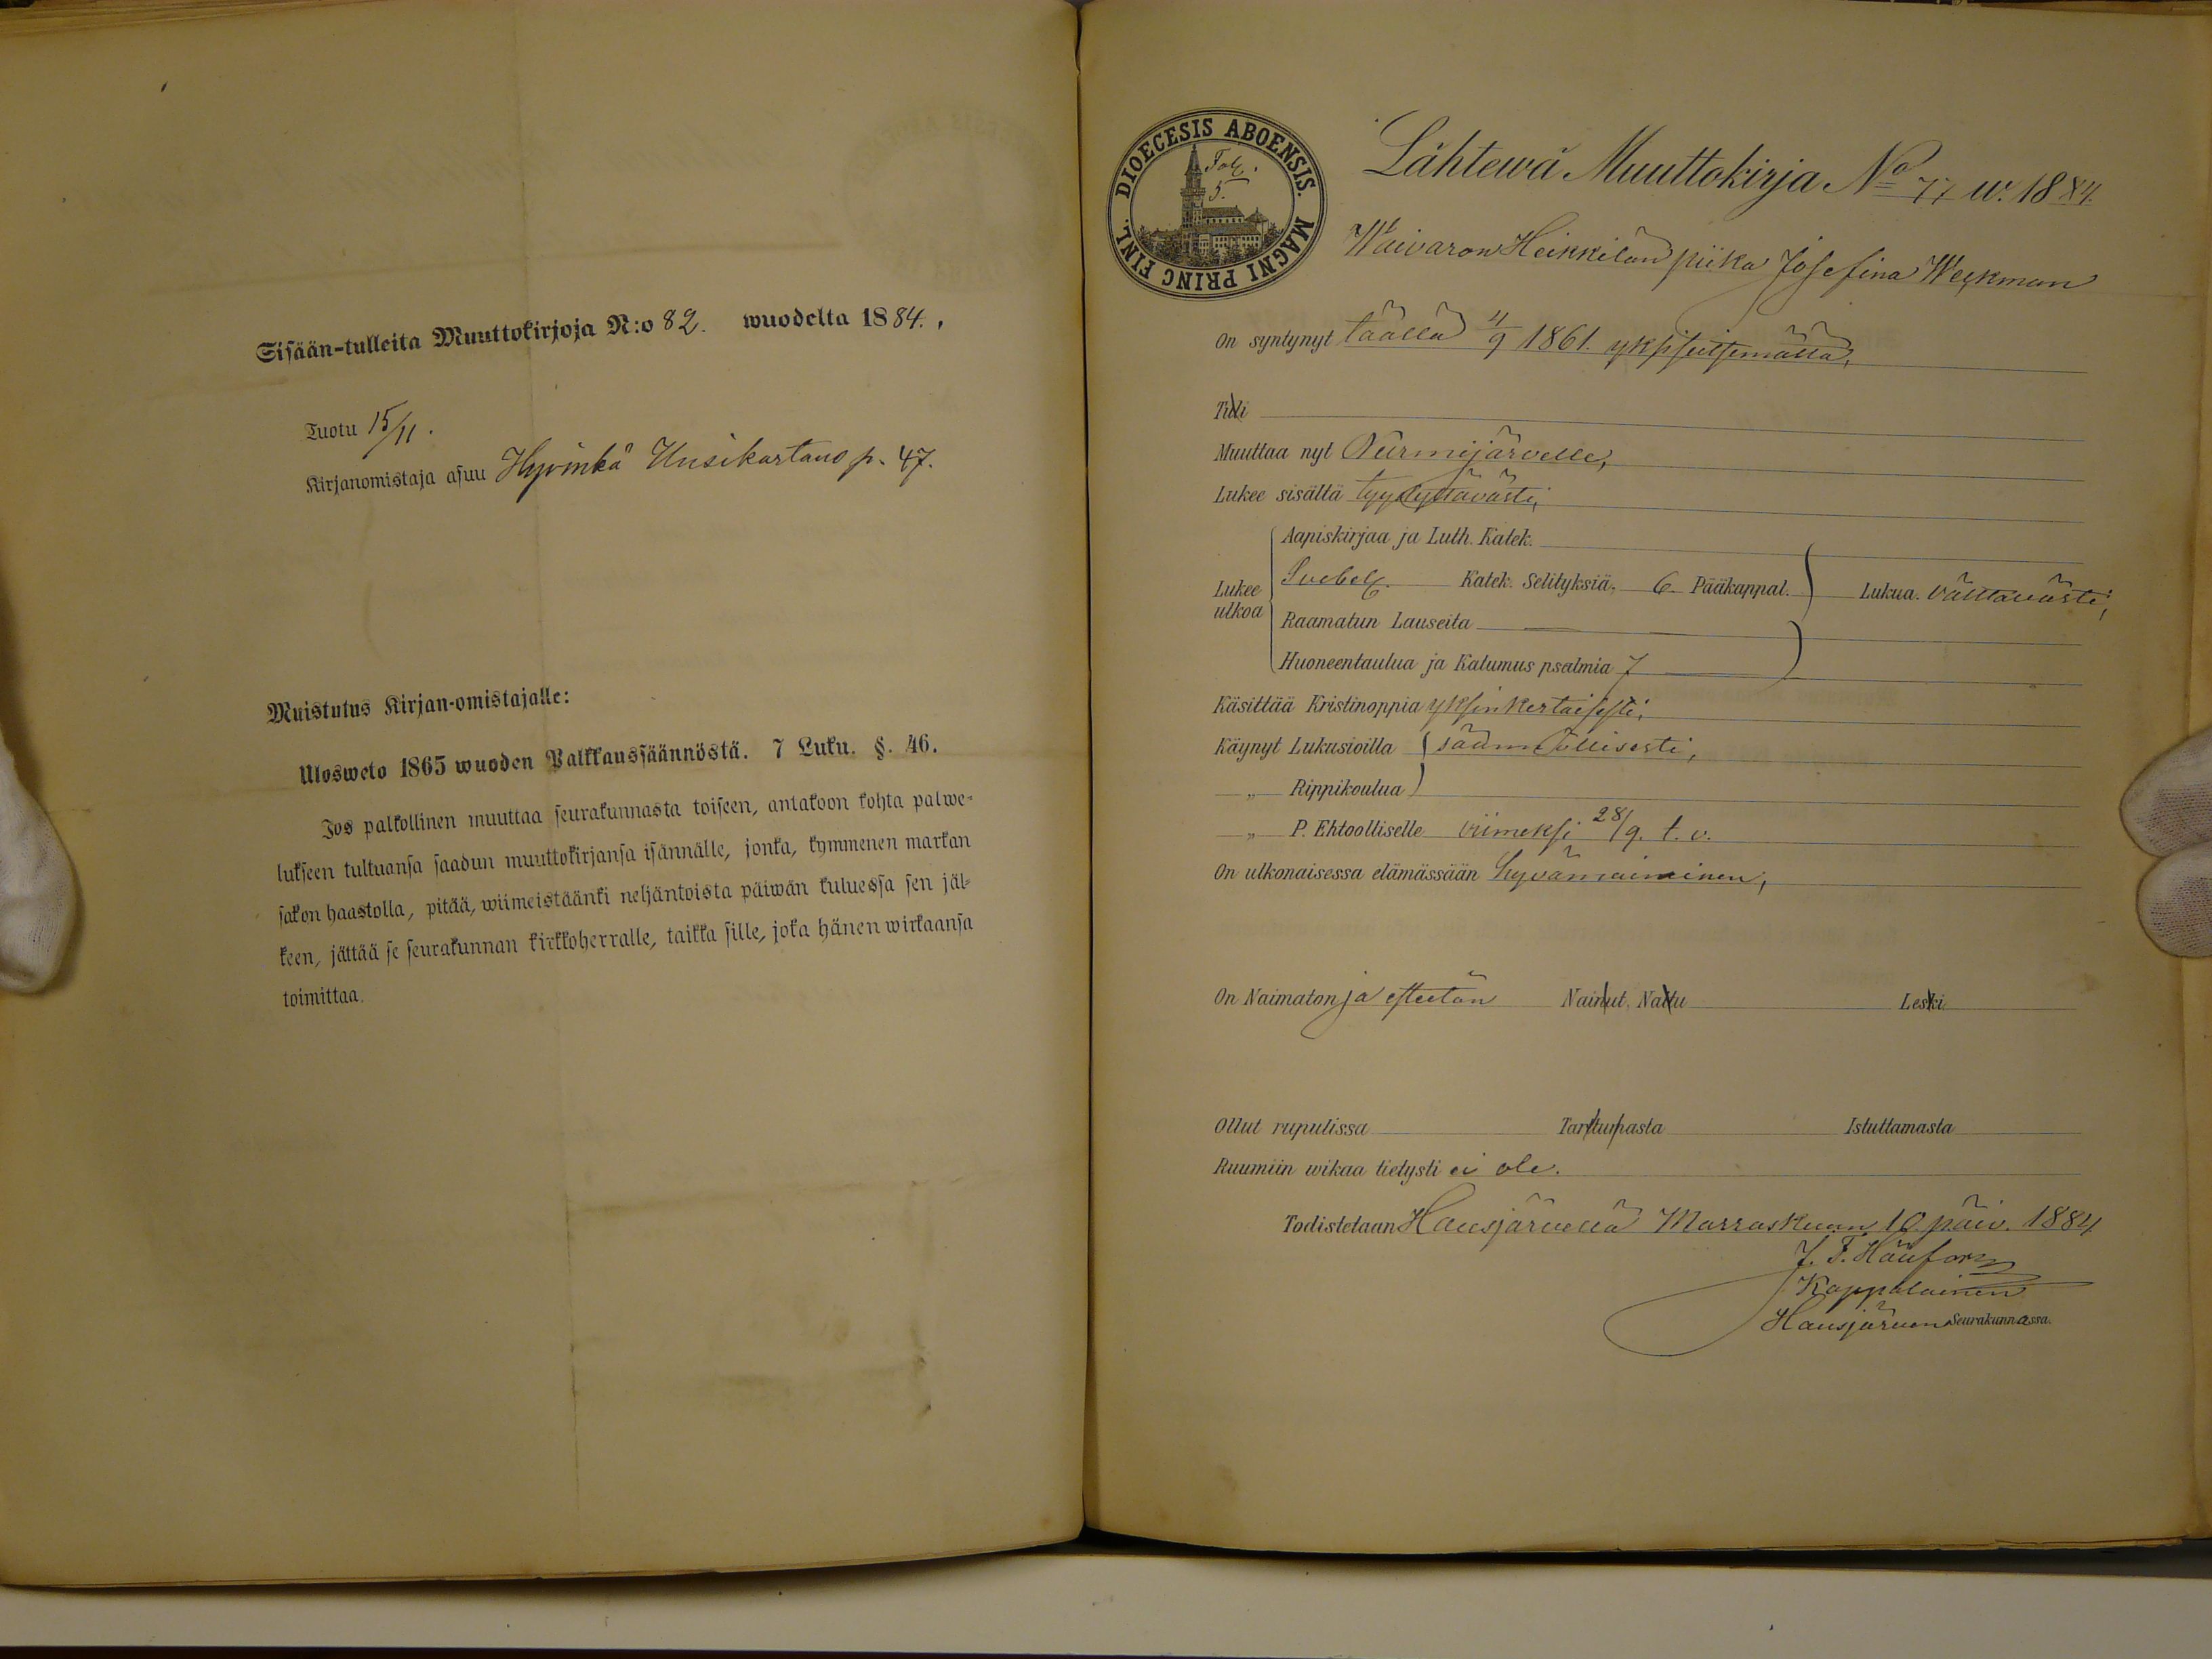 Sisään-tulleita Muuttokirjoja N:o 82. wuodelta 1884.
Tuotu 15/11.
Kirjanomistaja asuu Hyvinkä Uusikartano p. 47.
Muistutus Kirjan-omistajalle:
Ulosweto 1865 wuoden Palkkaussäännöstä. 7 Luku. §. 46.
Jos palkollinen muuttaa seurakunnasta toiseen, antakoon kohta palwe-
lukseen tultuansa saadun muuttokirjansa isännälle, jonka, kymmenen markan
sakon haastolla, pitää, wiimeistäänki neljäntoista päiwän kuluessa sen jäl-
keen, jättää se seurakunnan kirkkoherralle, taikka sille, joka hänen wirkaansa
toimittaa.
DIOECESIS ABOENSIS. MAGNI PRINC FINL.
Fol. 5.
Lähtewä Muuttokirja No 77 w. 1884.
Waivaron Heikkilän piika Josefina Weckman
On syntynyt täällä 4/9 1861.
Tuli
Muuttaa nyt Nurmijärvelle,
Lukee sisältä tyydyttävästi,
Aapiskirjaa ja Luth. Katek.
Lukee ulkoa Svebel. Katek. Selityksiä, 6 Pääkappal. Lukua. välttävästi,
Raamatun Lauseita
Huoneentaulua ja Katumus psalmia 7
Käsittää Kristinoppia yksinkertaisesti,
Käynyt Lukusioilla säännöllisesti,
„ Rippikoulua
„ P. Ehtoolliselle viimeksi 28/9. t. v.
On ulkonaisessa elämässään hyvämaininen,
On Naimaton ja esteetön Nainut, Naitu Leski
Ollut rupulissa Tarttumasta Istuttamasta
Ruumiin wikaa tietysti ei ole.
Todistetaan Hausjärvellä Marraskuun 10 päiv. 1884
Kappalainen
Hausjärven Seurakunnassa.